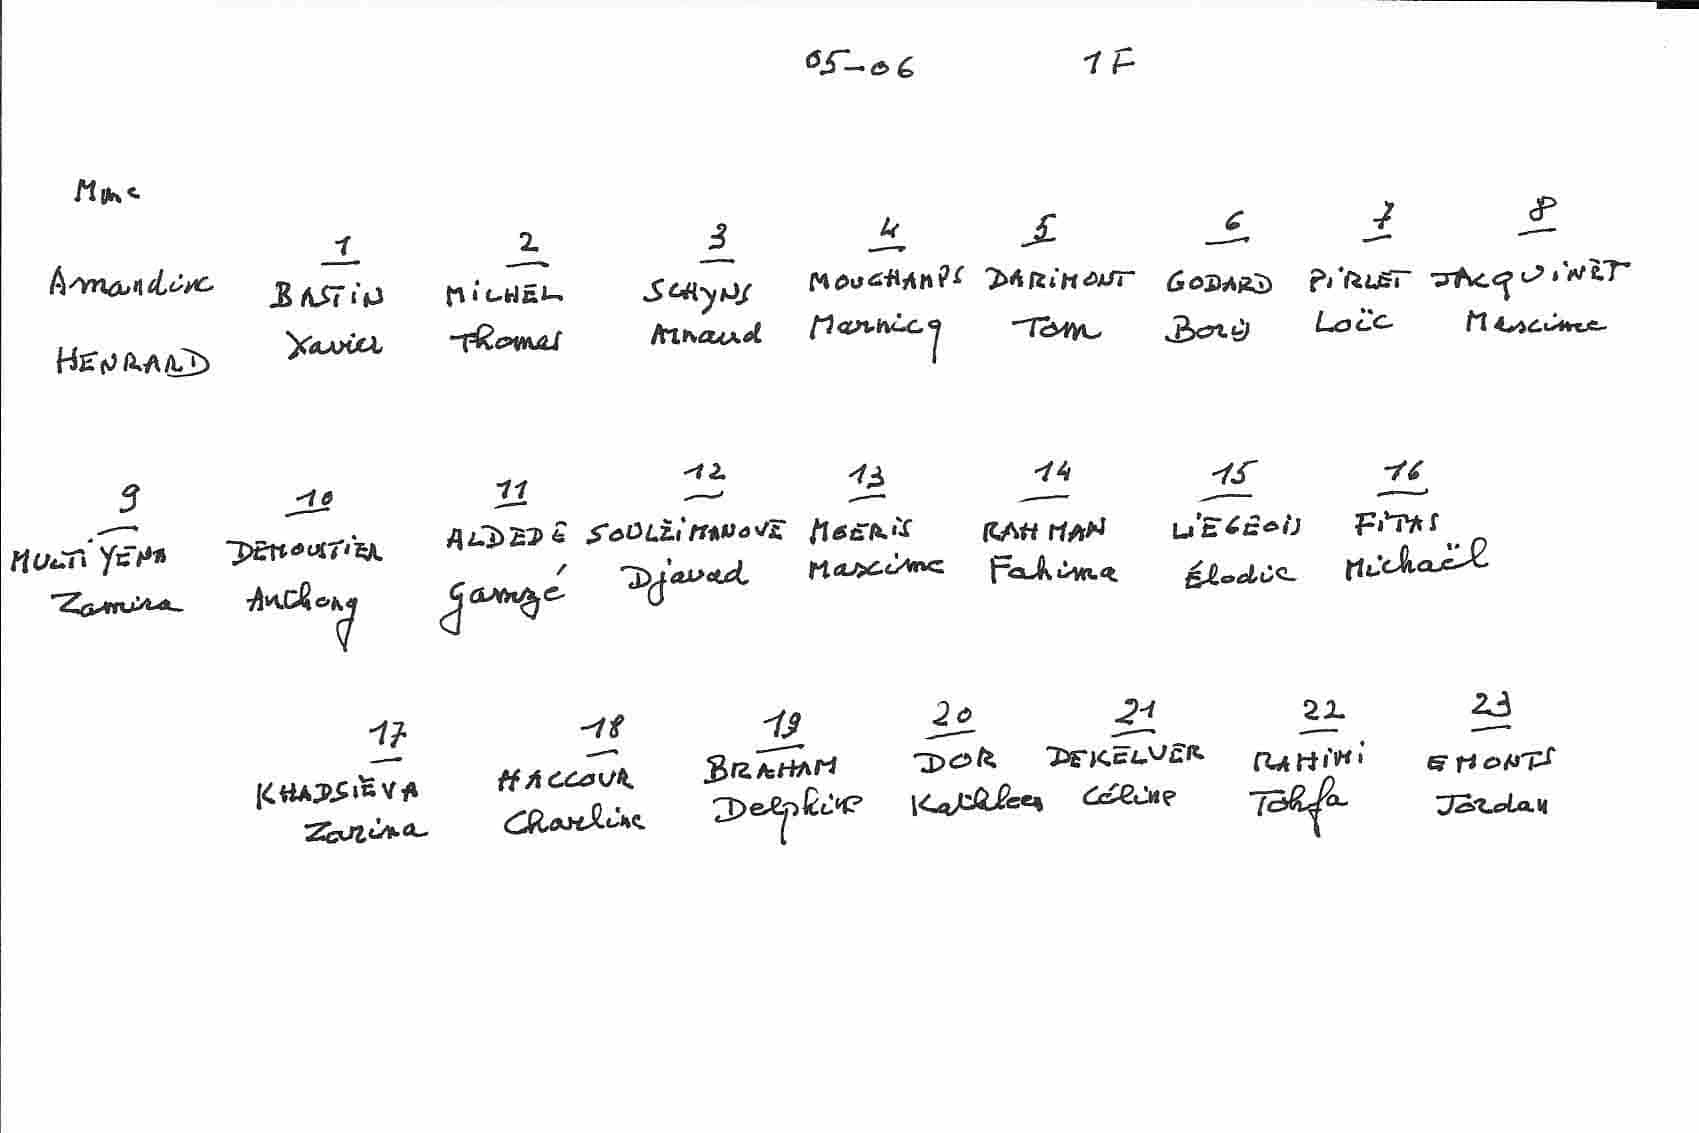 05-06 1F
Mme
1 2 3 4 5 6 7 8
Amandine BASTIN MICHEL SCHYNS MOUCHAMPS DARIMONT GODARD PIRLET JACQUINET
HENRARD Xavier Thomas Arnaud Marnicq Tom Borys Loïc Maxime
9 10 11 12 13 14 15 16
MULTIYENA DEMOUSTIER ALDEDE SOULEIMANOVE MGERIS RAHMAN LIEGEOIS FITAS
Zamira Anthony Gamzé Djavad Maxime Fahima Élodie Michaël
17 18 19 20 21 22 23
KHADSIEVA HACCOUR BRAHAM DOR DEKELVER RAHIMI EMONTS
Zarina Charline Delphine Kathleen Céline Tohfa Jordan